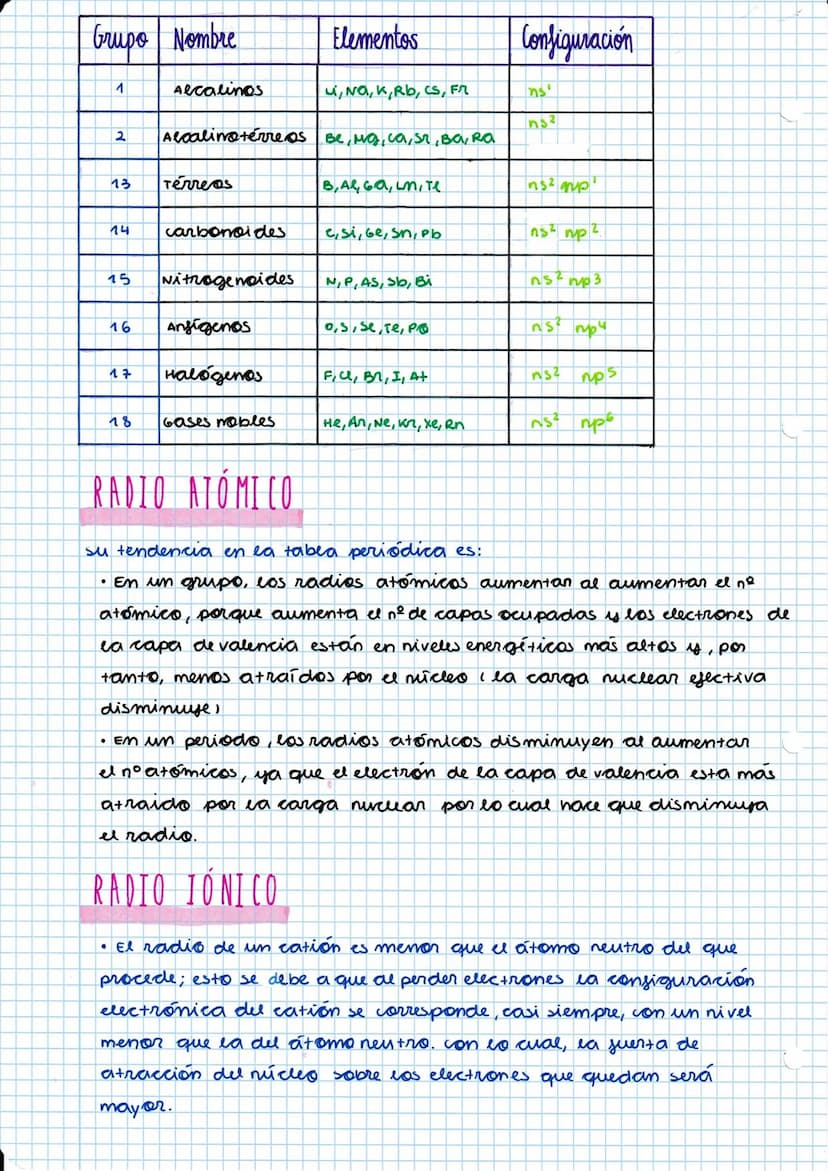 Grupo Nombre Elementos Configuración
1 Alcalinos Li, Na, K, Rb, Cs, Fr ns¹
2 Alcalinotérreos Be, Mg, Ca, Sr, Ba, Ra ns²
13 Térreos B, Al, Ga, In, Tl ns² np¹
14 Carbonoides C, Si, Ge, Sn, Pb ns² np²
15 Nitrogenoides N, P, As, Sb, Bi ns² np3
16 Anfígenos O, S, Se, Te, Po ns² np⁴
17 Halógenos F, Cl, Br, I, At ns² np5
18 Gases nobles He, Ar, Ne, Kr, Xe, Rn ns² np⁶
RADIO ATÓMICO
su tendencia en la tabla periódica es:
· En un grupo, los radios atómicos aumentan al aumentar el nº
atómico, porque aumenta el nº de capas ocupadas y los electrones de
la capa de valencia están en niveles energéticos más altos y, por
tanto, menos atraídos por el núcleo (la carga nuclear efectiva
disminuye)
· En un periodo, los radios atómicos disminuyen al aumentar
el nº atómicos, ya que el electrón de la capa de valencia esta más
atraido por la carga nuclear por lo cual hace que disminuya
el radio.
RADIO IÓNICO
· El radio de un catión es menor que el átomo neutro del que
procede; esto se debe a que al perder electrones la configuración
electrónica del catión se corresponde, casi siempre, con un nivel
menor que la del átomo neutro. con lo cual, la fuerza de
atracción del núcleo sobre los electrones que quedan será
mayor.